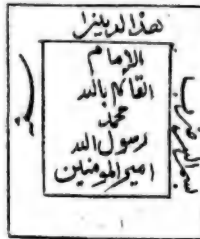 هذا الدينرا
بسم الله ضرب
الإمام
القائم بالله
محمد
رسول الله
امير المومنين